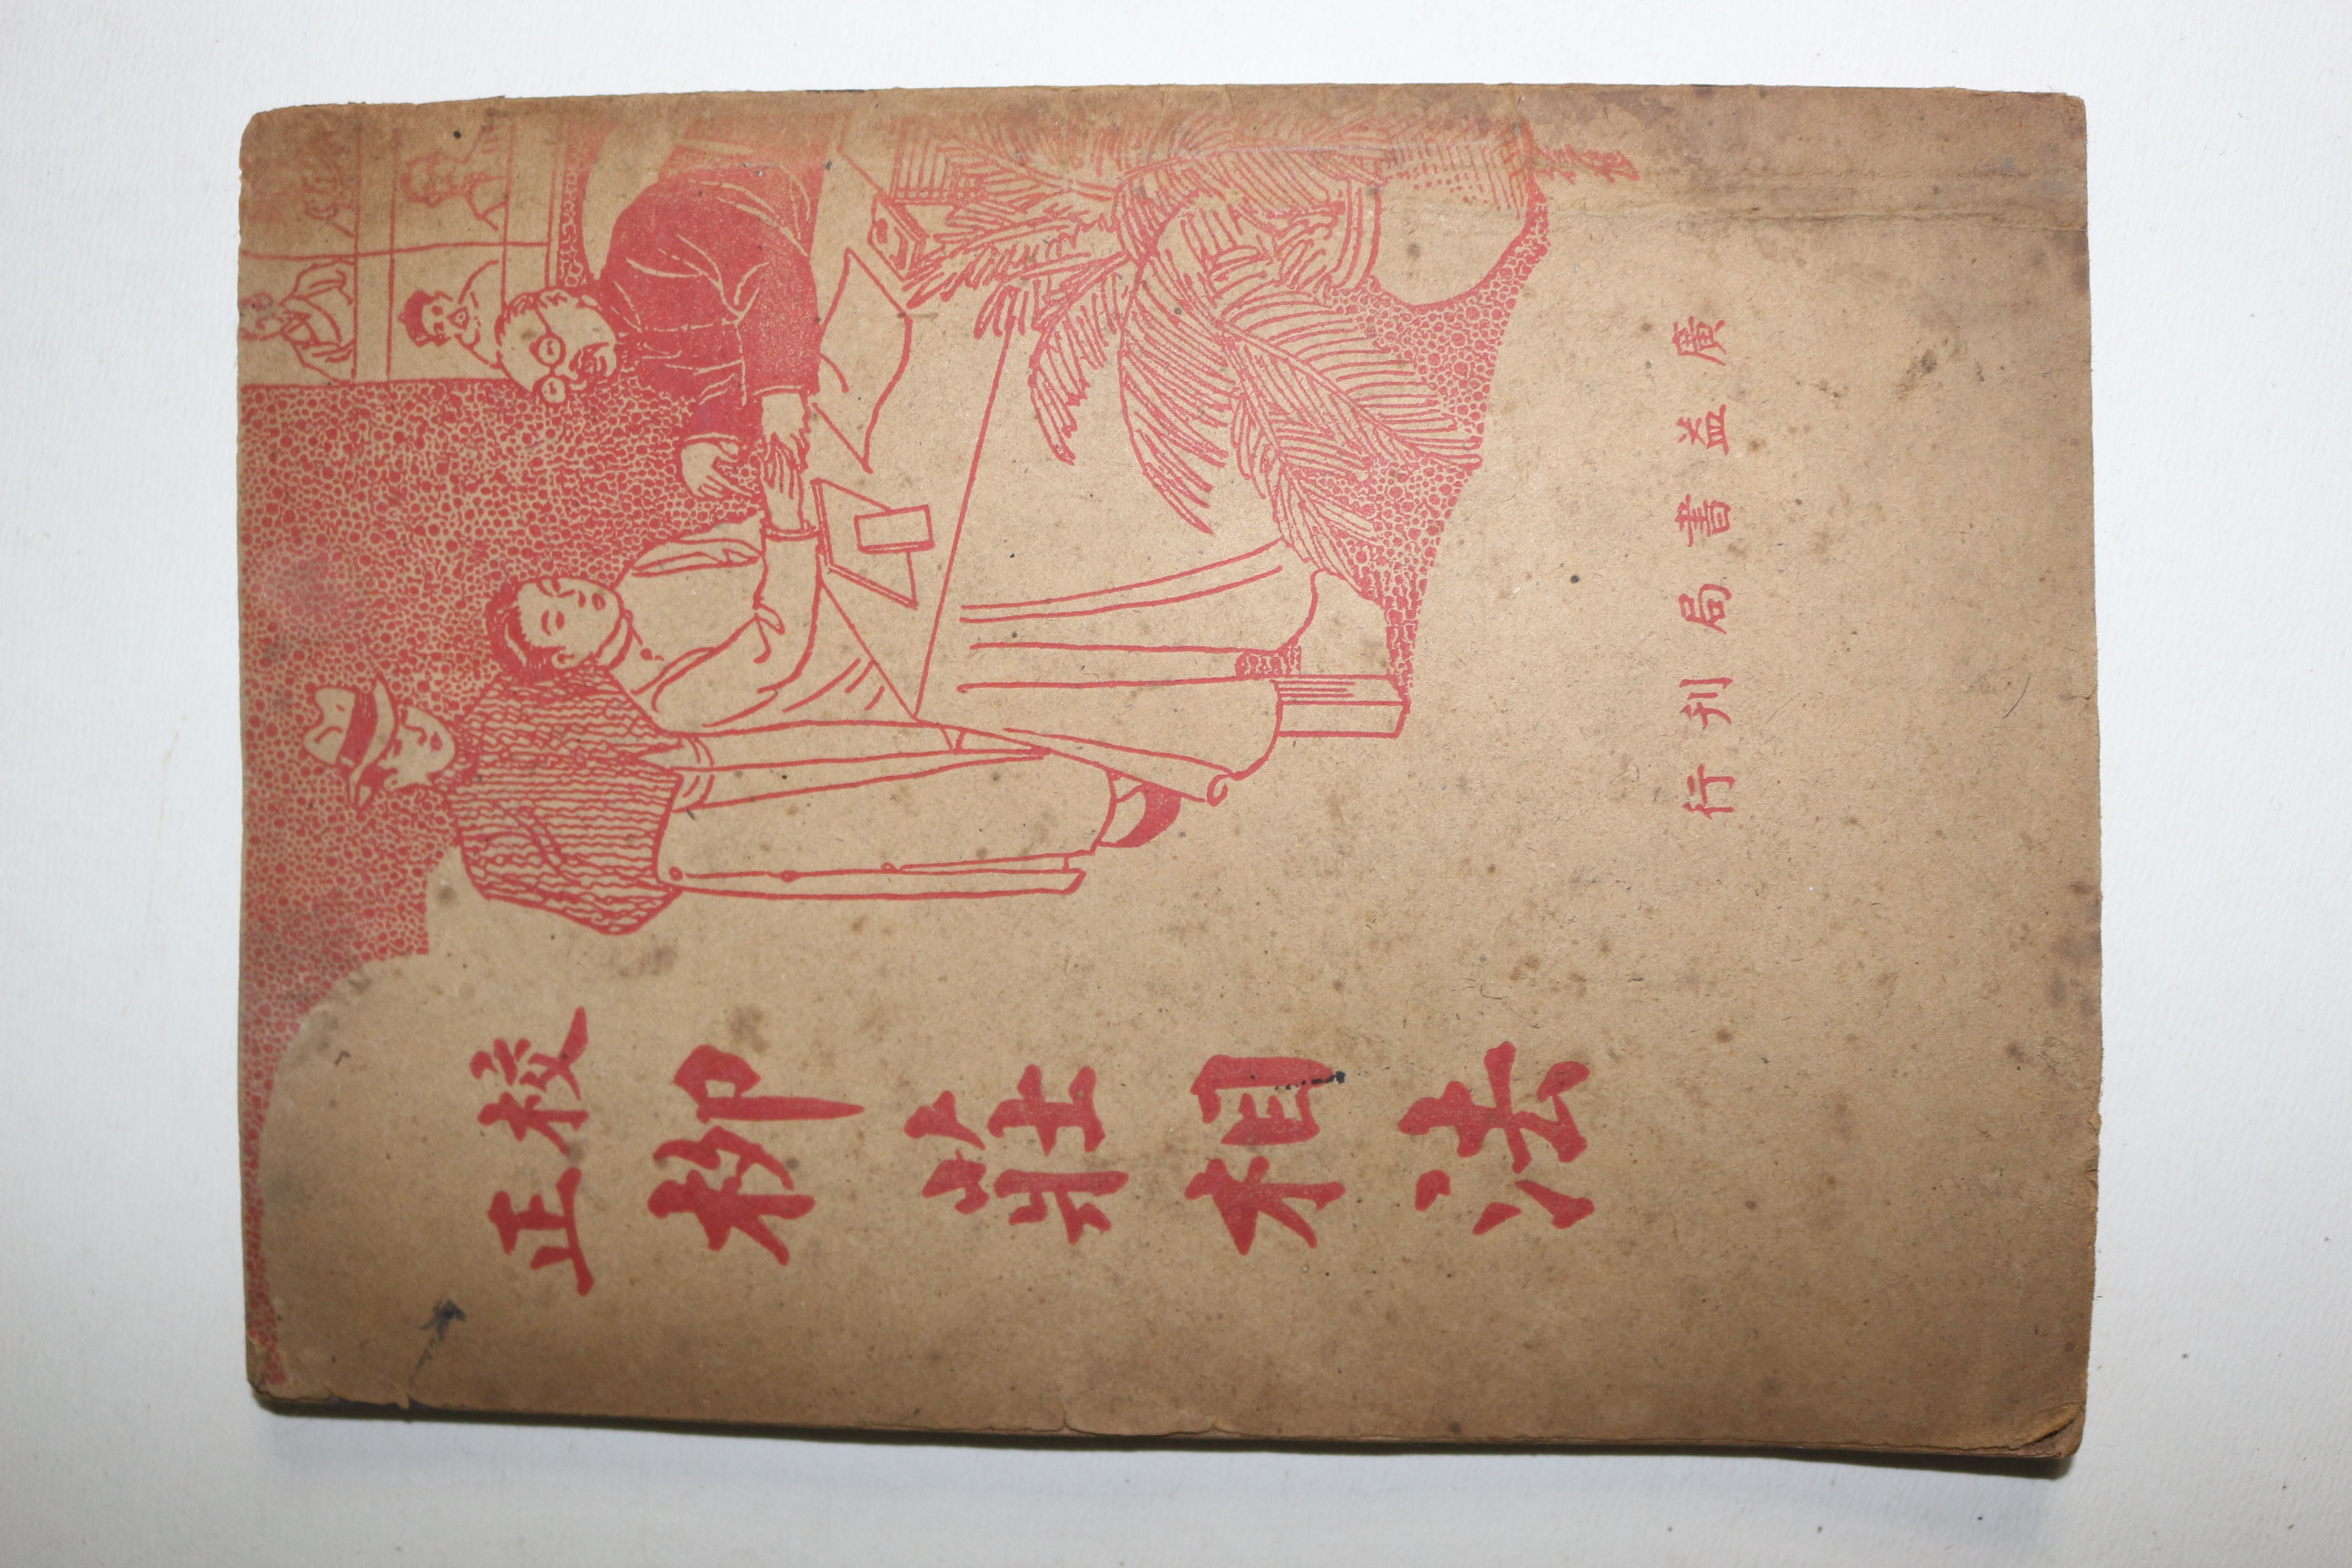 校正
柳莊相法
廣益書局刊行